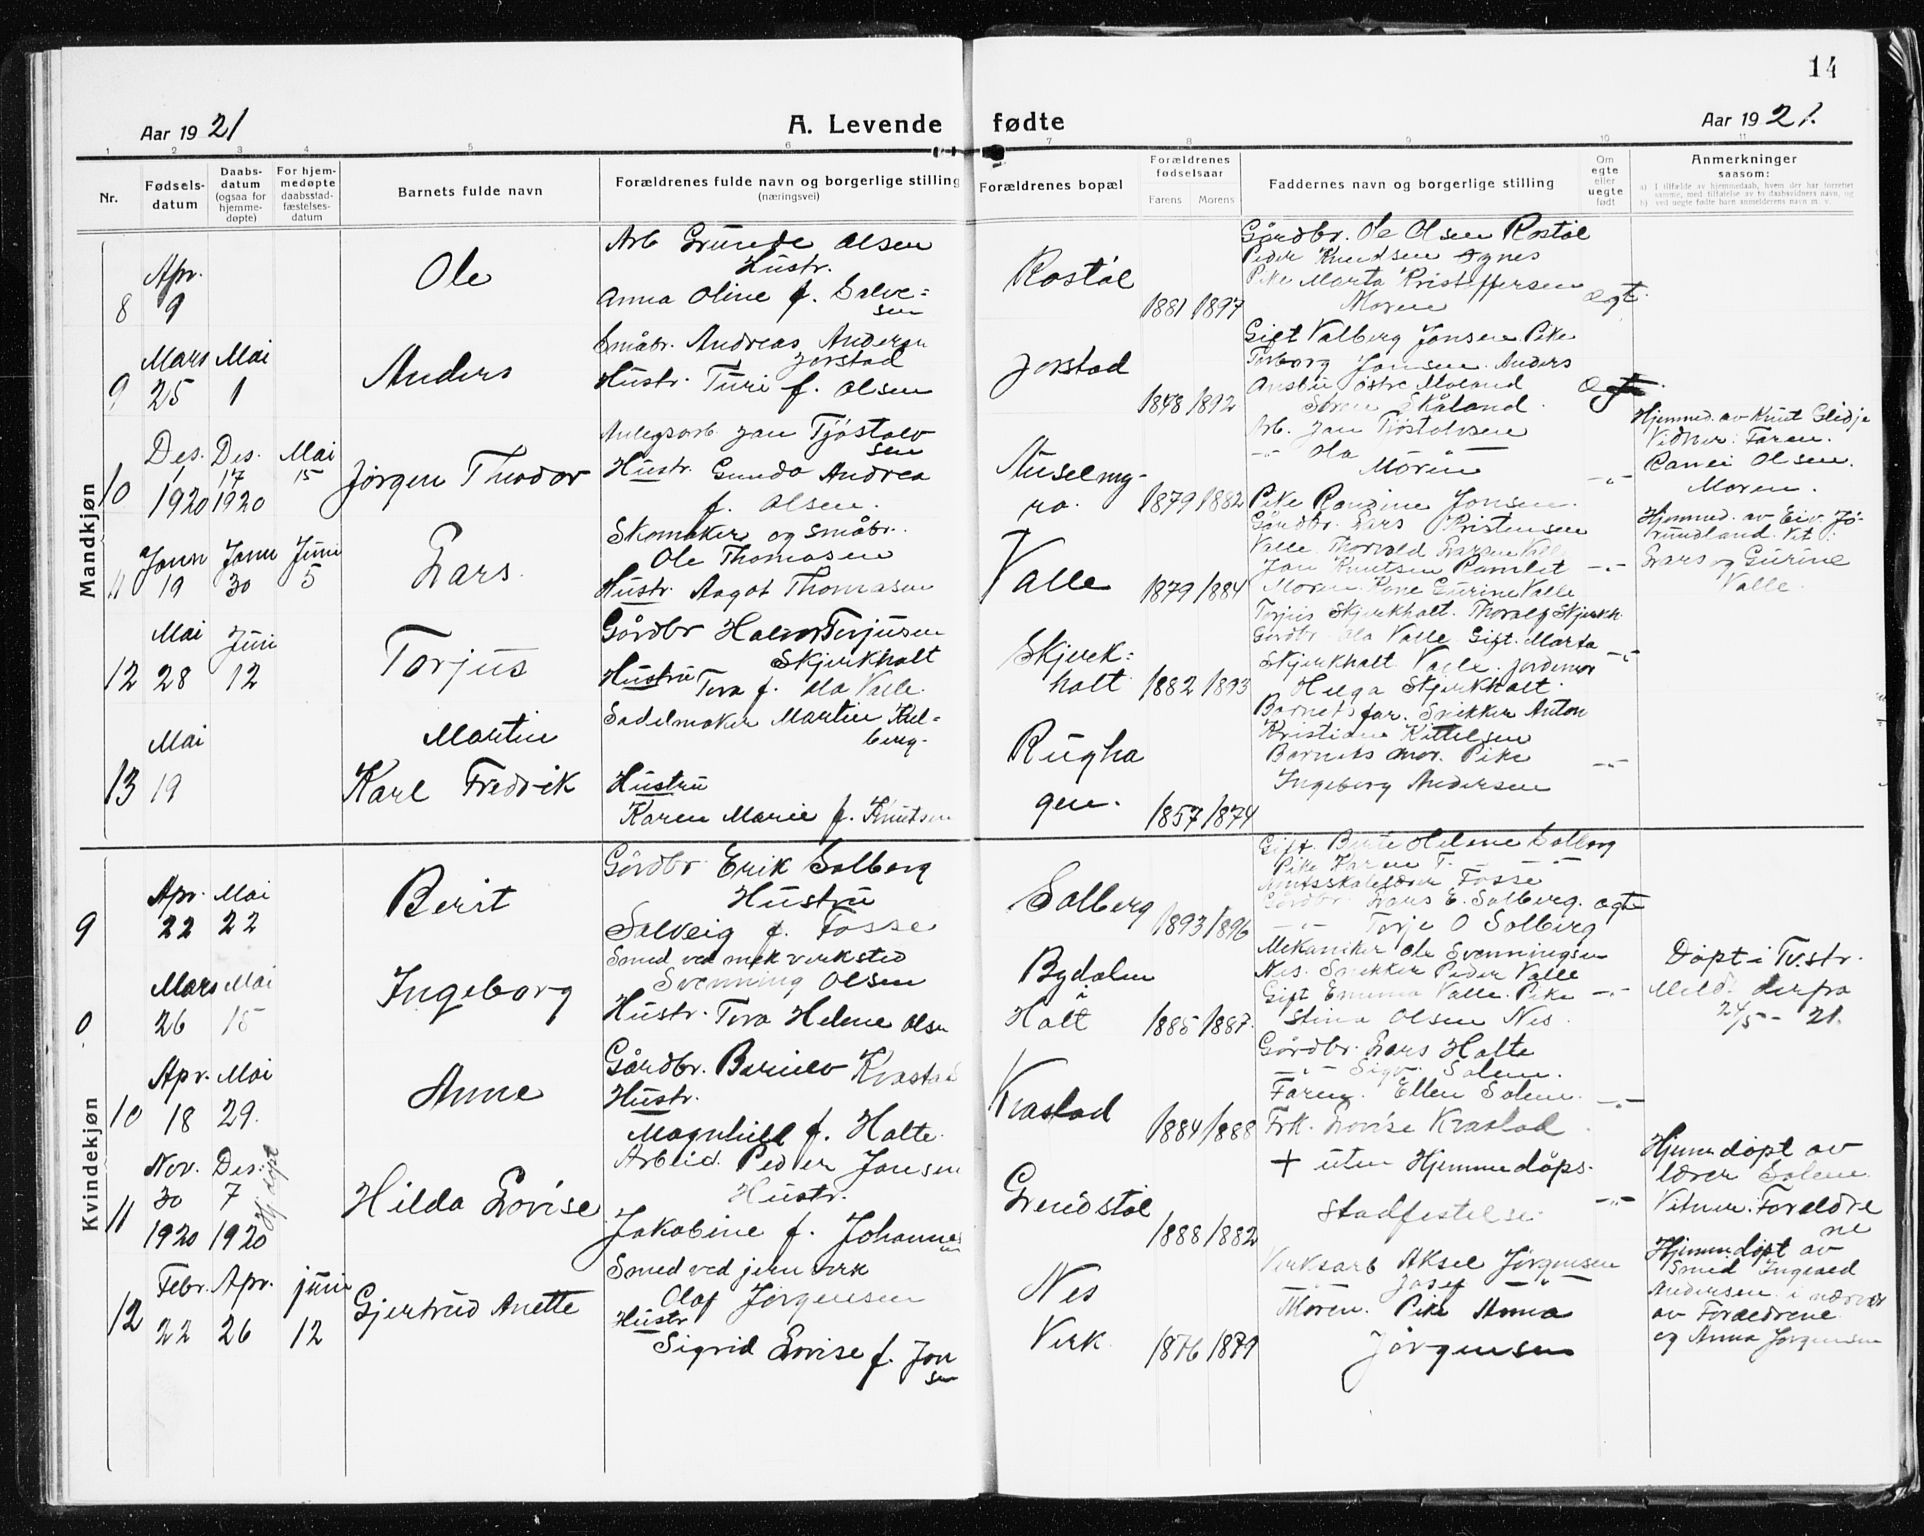 14
Aar 1921
A. Levende fødte
Aar 1921.
1 2 3 4 5 6 7 8 9 10 11
Nr.
Fødsels-
datum
Daabs-
datum
(ogsaa for
hjemme-
døpte)
For hjem-
medøpte
daabsstad-
fæstelses-
datum
Barnets fulde navn
Forældrenes fulde navn og borgerlige stilling
(næringsvei)
Forældrenes bopæl
Forældrenes
fødselsaar
Farens
Morens
Faddernes navn og borgerlige stilling
Om
egte
eller
uegte
født
Anmerkninger
saasom:
a) I tilfælde av hjemmedaab, hvem der har forrettet
samme, med tilføielse av to daabsvidners navn, og
b) ved uegte fødte barn anmelderens navn m. v.
Mandkjøn
8
Apr.
9
Ole
Arb Grunde Olsen
Hustr.
Anna Oline f. Salve=
sen
Rostøl
1881 1897
Gårdbr. Ole Olsen Rostøl
Peder Knudsen Agnes
Pike Marta Kristoffersen
Moren
Ægt.
9
Mars Mai
25 1
Anders
Småbr. Andreas Andersen
Jorstad
Hustr. Turi f. Olsen
Jorstad
1848 1892
Gift Valberg Jonsen Pike
Torborg Jonsen. Anders
Østre Moland
Søren Skåland.
10
Des. Des. Mai
1 17 15
1920 1920
Jørgen Thodor
Anlegsarb. Jan Tjøstolv
sen
Hustr. Gunda Andrea
f. Olsen.
Auselmy-
ra.
1879 1882
Arb. Jan Tjøstolvsen
-"- Ola
Moren
Pike Jonsen.
-"-
Hjemmed. av Knut Glidje
Vidner: Faren.
Olsen.
Moren.
11
Janu Janu Juni
19 30 5
Lars.
Skomaker og småbr.
Ole Thomasen
Hustr. Aagot Thomasen
Valle
1879 1884
Gårdbr. Lars Kristensen
Valle. Thorvald Larsen Valle
Jan Knutsen Ramlet
Moren Kone Gurine Valle
-"-
Hjemmed. av Eiv. Jø-
rundland. Vit.:
Lars og Gurine
Valle.
12
Mai Juni
28 12
Torjus
Gårdbr Halvor Torjusen
Skjerkholt
Hustru Tora f. Ola Valle.
Skjerk=
holt
1882 1893
Torjus Skjerkholt. Thoralf Skjerkh.
Gårdbr Ola Valle. Gift. Marta
Skjerkholt Valle. Jordemor
Helga Skjerkholt.
-"-
13
Mai
19
Martin
Karl Fredrik
Sadelmaker Martin Kul=
berg.
Hustru
Karen Marie f. Knutsen
Rugha
gen.
1857 1874
Barnets far. Snekker Anton
Kristian Kittelsen
Barnets mor. Pike
Ingeborg Andersen
-"-
Kvindekjøn
9
Apr. Mai
22 22
Berit
Gårdbr Erik Solberg
Hustru
Solveig f. Fosse
Solberg
1893 1896
Gift Berte Helene Solberg
Pike Karen T. - " -
Amtsskolelærer Fosse
Gårdbr. Lars E. Solberg.
-"- Torje O Solberg
ægte
0
Mars Mai
26 15
Ingeborg
Smed ved mek verksted
Svenning Olsen
Hustr. Tora Helene Olsen
Bydalen
i
Holt
1885 1887.
Mekaniker Ole Svenningsen
Nes. Snekker Peder Valle
Gift Emma Valle. Pike
Stina Olsen Nes.
-"-
Døpt i Tv.str.
Meld. derfra
24/5 - 21.
10
Apr. Mai
18 29.
Anne
Gårdbr. Kvastad
Hustr.
Magnhild f. Holte.
Kvastad
1884 1888
Gårdbr. Lars Holte
-"- Sigv. Solem.
Faren. Ellen Solem.
Frk. Lovise Kvastad.
-"-
11
Nov. Des.
30 7
1920 1920
Hj. døpt
Hilda Lovise
Arbeid. Peder Jonsen
Hustr.
Jakobine f. Johannes
sen
Grendstøl
1888 1882
+ uten Hjemmedøps-
stadfestelse.
-"-
Hjemmedøpt av
lærer Solem.
Vitner: Foreldre
ne
12
Febr. Apr. juni
22 26 12
Gjertrud Anette
Smed ved jernverk
Olaf Jørgensen
Hustr
Sigrid Lovise f. Jon
sen
Nes
Verk
1876 1879
Verksarb Aksel Jørgensen
-"- Josef -"-
Moren. Pike Anna
Jørgensen
Hjemmedøpt av
Smed Ingvald
Andersen i nærvær
av Foreldrene
og Anna Jørgensen